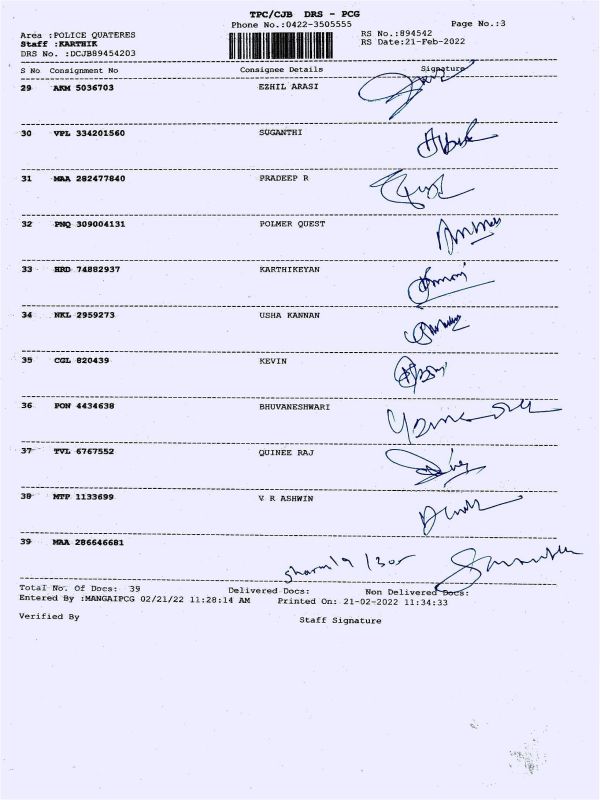 TPC/CJB DRS - PCG
Phone No.:0422-3505555 Page No.:3
Area :POLICE QUATERES RS No.:894542
Staff :KARTHIK RS Date:21-Feb-2022
DRS No. :DCJB89454203
S No Consignment No Consignee Details Signature
29 AKM 5036703 EZHIL ARASI
30 VPL 334201560 SUGANTHI
31 MAA 282477840 PRADEEP R
32 PNQ 309004131 POLMER QUEST
33 HRD 74882937 KARTHIKEYAN
34 NKL 2959273 USHA KANNAN
35 CGL 820439 KEVIN
36 PON 4434638 BHUVANESHWARI
37 TVL 6767552 QUINEE RAJ
38 MTP 1133699 V R ASHWIN
39 MAA 286646681
Total No. Of Docs: 39 Delivered Docs: Non Delivered Docs:
Entered By :MANGAIPCG 02/21/22 11:28:14 AM Printed On: 21-02-2022 11:34:33
Verified By Staff Signature